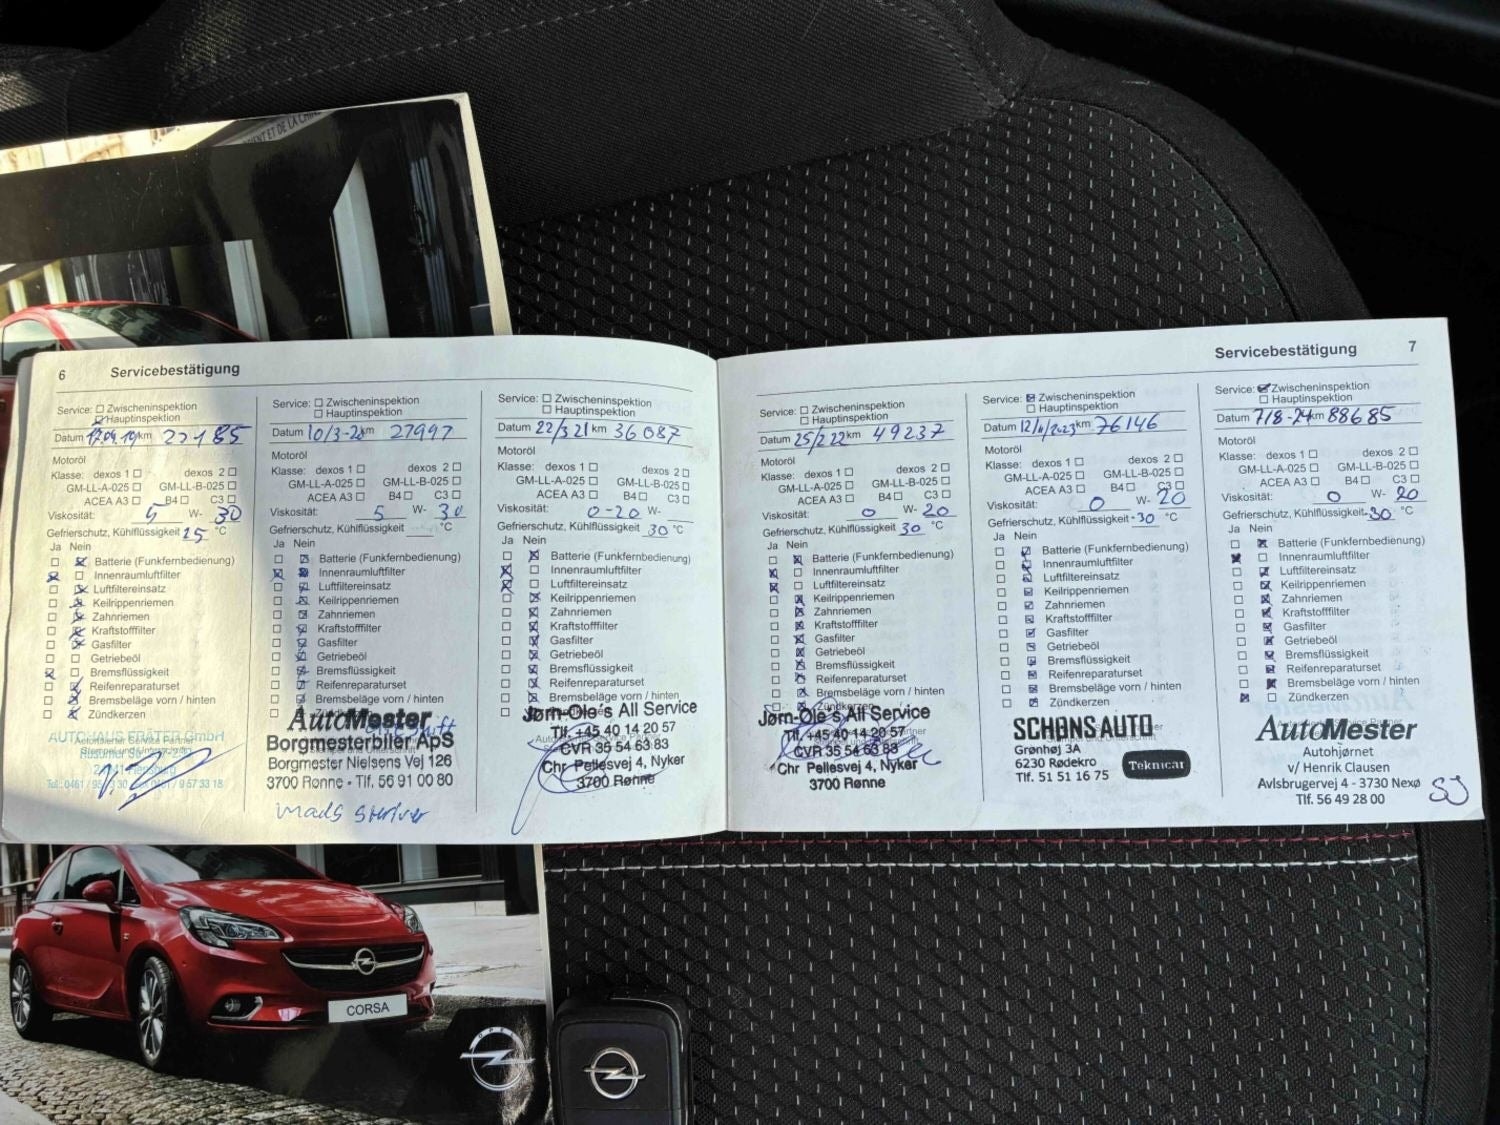 6 Servicebestätigung
Service: Zwischeninspektion
Hauptinspektion
Datum 17.04.19 km 22185
Motoröl
Klasse: dexos 1 dexos 2
GM-LL-A-025 GM-LL-B-025
ACEA A3 B4 C3
Viskosität: 5 W- 30
Gefrierschutz, Kühlflüssigkeit 25 °C
Ja Nein
Batterie (Funkfernbedienung)
Innenraumluftfilter
Luftfiltereinsatz
Keilrippenriemen
Zahnriemen
Kraftstofffilter
Gasfilter
Getriebeöl
Bremsflüssigkeit
Reifenreparaturset
Bremsbeläge vorn / hinten
Zündkerzen
AUTOHAUS FRÄTER GmbH
Service: Zwischeninspektion
Hauptinspektion
Datum 10/3-20 km 27997
Motoröl
Klasse: dexos 1 dexos 2
GM-LL-A-025 GM-LL-B-025
ACEA A3 B4 C3
Viskosität: 5 W- 30
Gefrierschutz, Kühlflüssigkeit °C
Ja Nein
Batterie (Funkfernbedienung)
Innenraumluftfilter
Luftfiltereinsatz
Keilrippenriemen
Zahnriemen
Kraftstofffilter
Gasfilter
Getriebeöl
Bremsflüssigkeit
Reifenreparaturset
Bremsbeläge vorn / hinten
AutoMester
Borgmesterbiler ApS
Borgmester Nielsens Vej 126
3700 Rønne • Tlf. 56 91 00 80
Mads
Service: Zwischeninspektion
Hauptinspektion
Datum 22/3 21 km 36087
Motoröl
Klasse: dexos 1 dexos 2
GM-LL-A-025 GM-LL-B-025
ACEA A3 B4 C3
Viskosität: 0-20 W-
Gefrierschutz, Kühlflüssigkeit 30 °C
Ja Nein
Batterie (Funkfernbedienung)
Innenraumluftfilter
Luftfiltereinsatz
Keilrippenriemen
Zahnriemen
Kraftstofffilter
Gasfilter
Getriebeöl
Bremsflüssigkeit
Reifenreparaturset
Bremsbeläge vorn / hinten
Jørn-Ole´s All Service
Tlf. +45 40 14 20 57
CVR 35 54 63 83
Chr Pellesvej 4, Nyker
3700 Rønne
Servicebestätigung 7
Service: Zwischeninspektion
Hauptinspektion
Datum 25/2 22 km 49237
Motoröl
Klasse: dexos 1 dexos 2
GM-LL-A-025 GM-LL-B-025
ACEA A3 B4 C3
Viskosität: 0 W- 20
Gefrierschutz, Kühlflüssigkeit 30 °C
Ja Nein
Batterie (Funkfernbedienung)
Innenraumluftfilter
Luftfiltereinsatz
Keilrippenriemen
Zahnriemen
Kraftstofffilter
Gasfilter
Getriebeöl
Bremsflüssigkeit
Reifenreparaturset
Bremsbeläge vorn / hinten
Zündkerzen
Jørn-Ole´s All Service
Tlf. +45 40 14 20 57
CVR 35 54 63 83
Chr Pellesvej 4, Nyker
3700 Rønne
Service: Zwischeninspektion
Hauptinspektion
Datum 12/4/2023 km 76146
Motoröl
Klasse: dexos 1 dexos 2
GM-LL-A-025 GM-LL-B-025
ACEA A3 B4 C3
Viskosität: 0 W- 20
Gefrierschutz, Kühlflüssigkeit -30 °C
Ja Nein
Batterie (Funkfernbedienung)
Innenraumluftfilter
Luftfiltereinsatz
Keilrippenriemen
Zahnriemen
Kraftstofffilter
Gasfilter
Getriebeöl
Bremsflüssigkeit
Reifenreparaturset
Bremsbeläge vorn / hinten
Zündkerzen
SCHØNS AUTO
Grønhøj 3A
6230 Rødekro
Tlf. 51 51 16 75
Teknicar
Service: Zwischeninspektion
Hauptinspektion
Datum 7/8-24 km 88685
Motoröl
Klasse: dexos 1 dexos 2
GM-LL-A-025 GM-LL-B-025
ACEA A3 B4 C3
Viskosität: 0 W- 20
Gefrierschutz, Kühlflüssigkeit -30 °C
Ja Nein
Batterie (Funkfernbedienung)
Innenraumluftfilter
Luftfiltereinsatz
Keilrippenriemen
Zahnriemen
Kraftstofffilter
Gasfilter
Getriebeöl
Bremsflüssigkeit
Reifenreparaturset
Bremsbeläge vorn / hinten
Zündkerzen
AutoMester
Autohjørnet
v/ Henrik Clausen
Avlsbrugervej 4 - 3730 Nexø
Tlf. 56 49 28 00
SJ
CORSA
OPEL